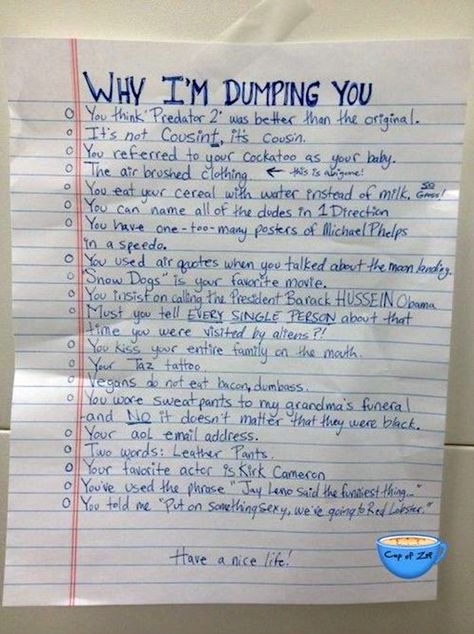 WHY I'M DUMPING YOU
You think 'Predator 2' was better than the original.
It's not Cousint, it's cousin.
You referred to your cockatoo as your baby.
The air brushed clothing. ← this is awesome!
You eat your cereal with water instead of milk. So Gross!
You can name all of the dudes in 1 Direction
You have one-too-many posters of Michael Phelps
in a speedo.
You used air quotes when you talked about the moon landing.
"Snow Dogs" is your favorite movie.
You insist on calling the President Barack HUSSEIN Obama
Must you tell EVERY SINGLE PERSON about that
time you were visited by aliens?!
You kiss your entire family on the mouth.
Your Taz tattoo.
Vegans do not eat bacon, dumbass.
You wore sweatpants to my grandma's funeral
-and NO it doesn't matter that they were black.
Your aol email address.
Two words: Leather Pants.
Your favorite actor is Kirk Cameron
You've used the phrase "Jay Leno said the funniest thing..."
You told me "Put on something sexy, we're going to Red Lobster."
Have a nice life!
Cup of Zup